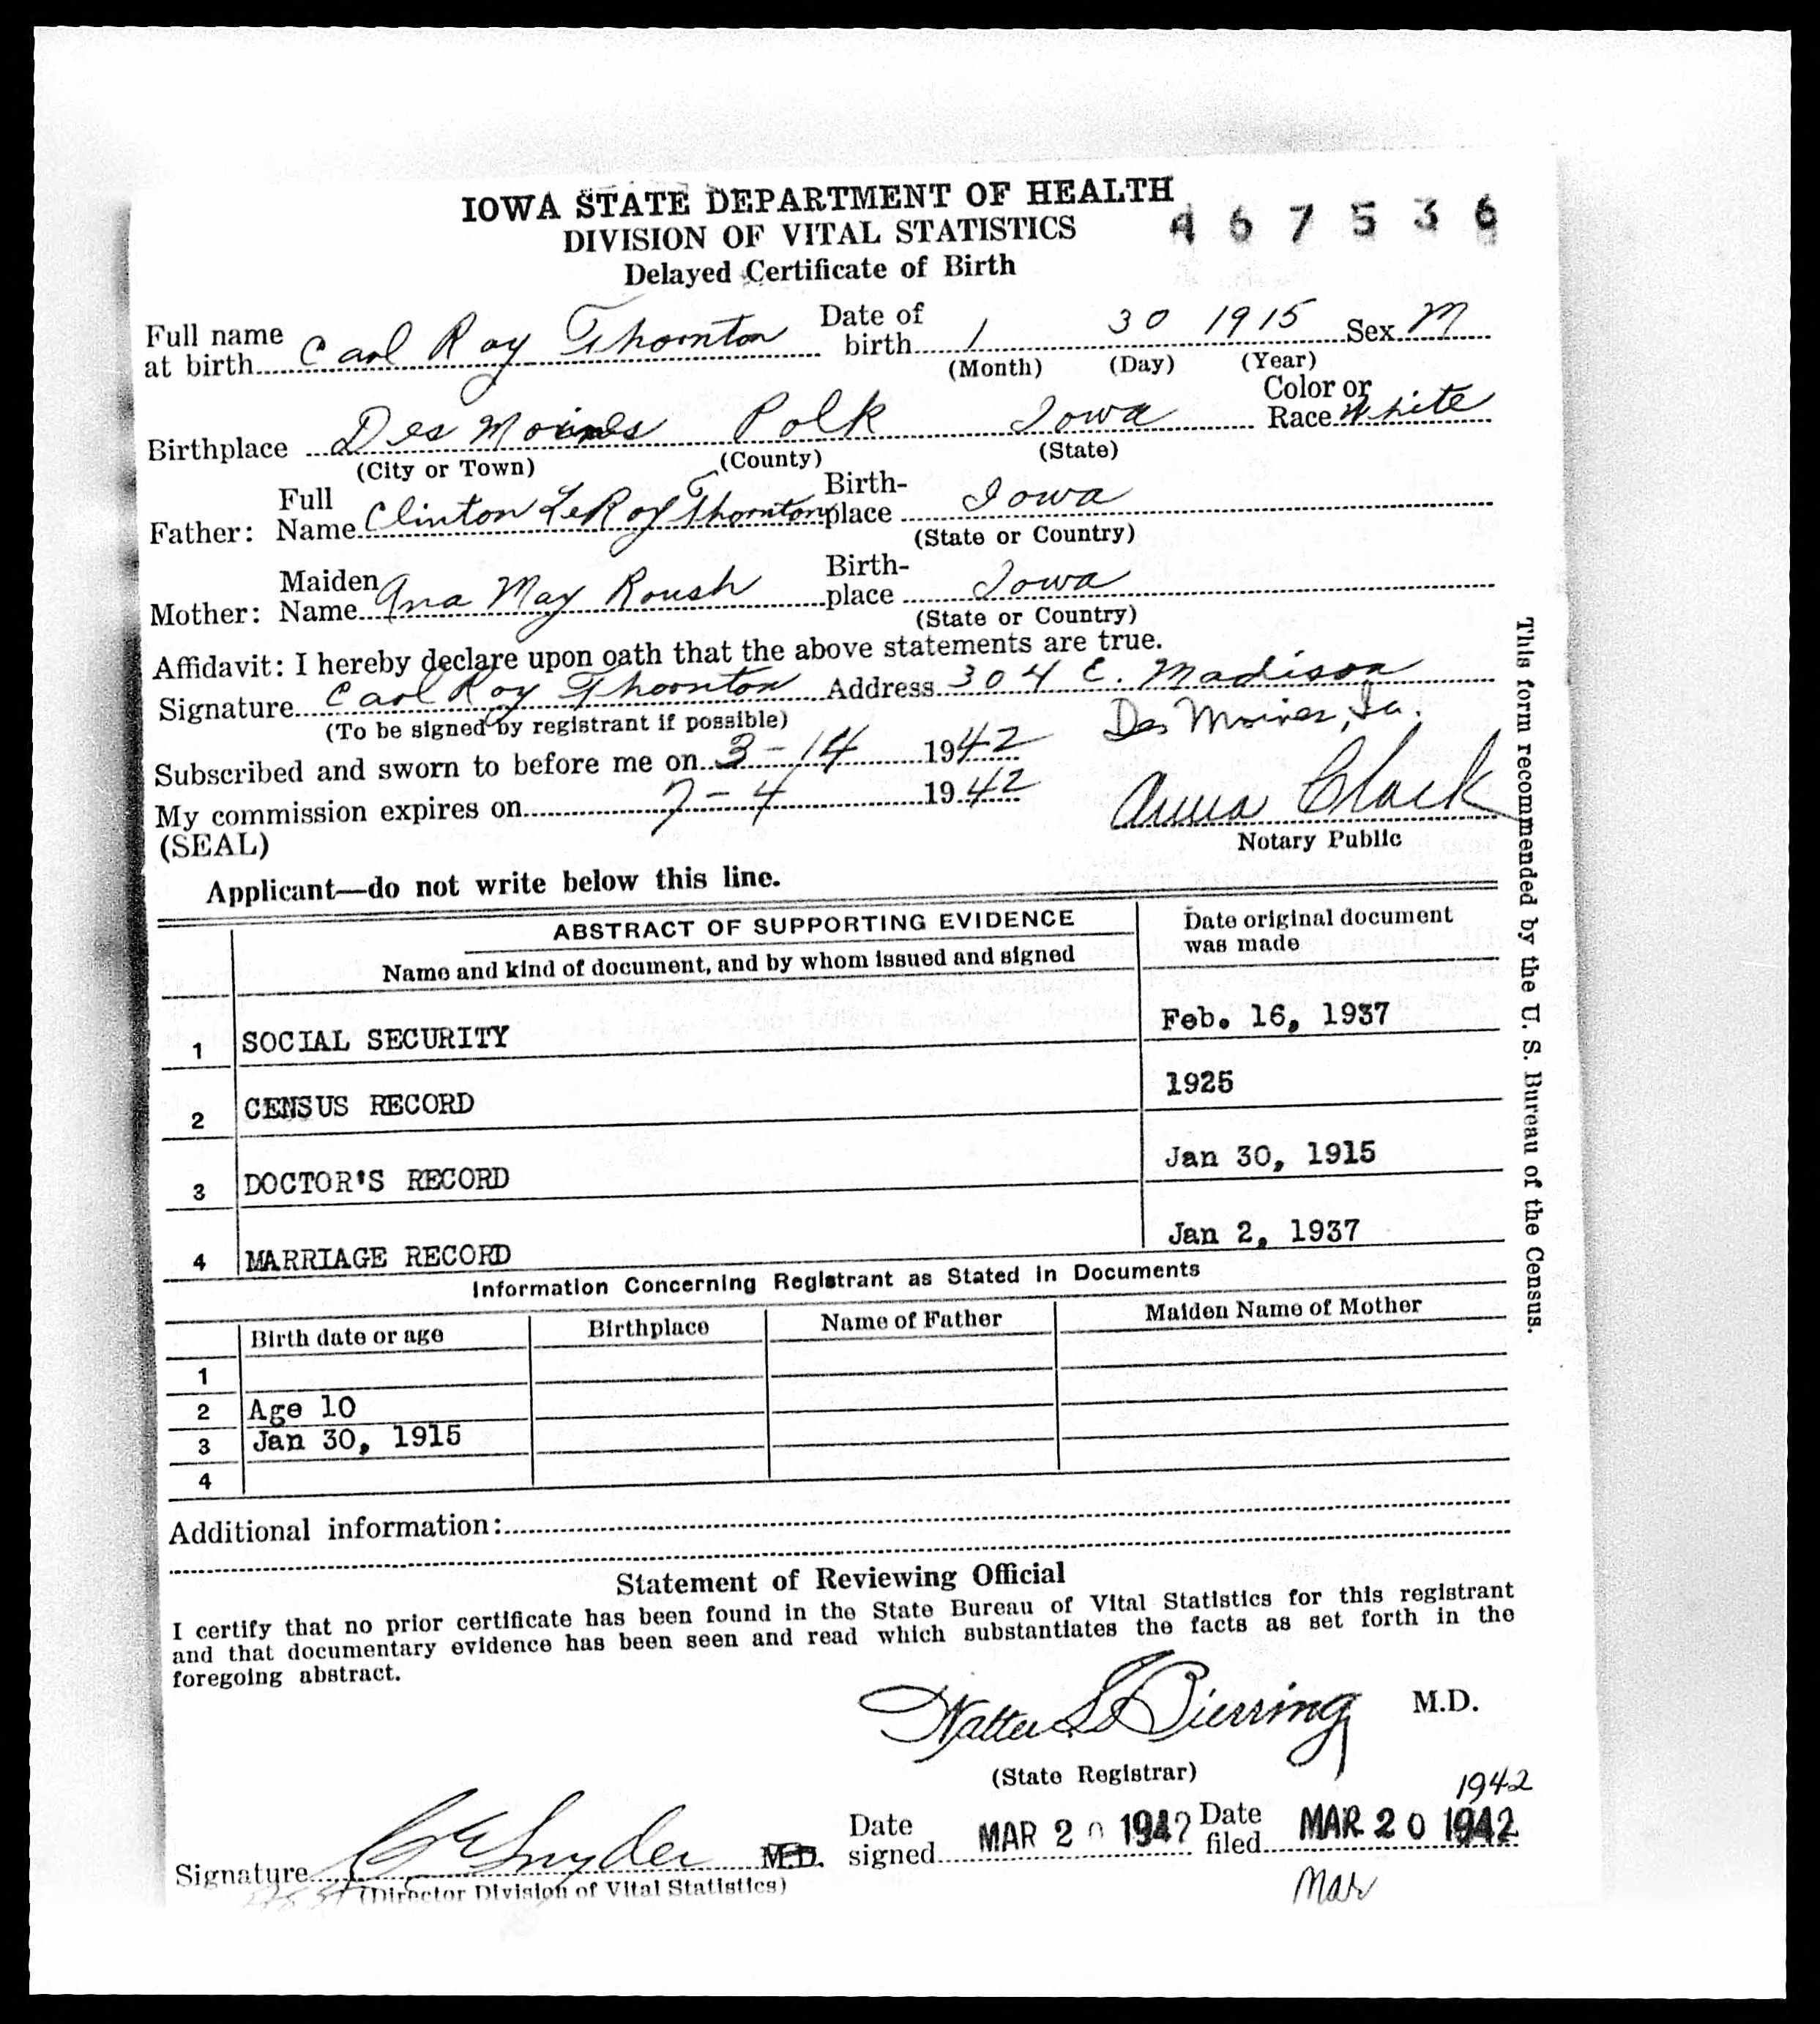 IOWA STATE DEPARTMENT OF HEALTH
DIVISION OF VITAL STATISTICS
467536
Delayed Certificate of Birth
Full name at birth Carl Roy Thornton Date of birth 1 30 1915 Sex M
(Month) (Day) (Year)
Birthplace Des Moines Polk Iowa Color or Race White
(City or Town) (County) (State)
Father: Full Name Clinton LeRoy Thornton Birth-place Iowa
(State or Country)
Mother: Maiden Name Ana May Roush Birth-place Iowa
(State or Country)
Affidavit: I hereby declare upon oath that the above statements are true.
Signature Carl Roy Thornton Address 304 E. Madison
(To be signed by registrant if possible) Des Moines, Ia.
Subscribed and sworn to before me on 3-14 1942
My commission expires on 7-4 1942 Anna Clark
(SEAL) Notary Public
Applicant—do not write below this line.
ABSTRACT OF SUPPORTING EVIDENCE
Name and kind of document, and by whom issued and signed
Date original document was made
1 SOCIAL SECURITY Feb. 16, 1937
2 CENSUS RECORD 1925
3 DOCTOR'S RECORD Jan 30, 1915
4 MARRIAGE RECORD Jan 2, 1937
Information Concerning Registrant as Stated in Documents
Birth date or age Birthplace Name of Father Maiden Name of Mother
1
2 Age 10
3 Jan 30, 1915
4
Additional information:
Statement of Reviewing Official
I certify that no prior certificate has been found in the State Bureau of Vital Statistics for this registrant
and that documentary evidence has been seen and read which substantiates the facts as set forth in the
foregoing abstract.
Walter L Bierring M.D.
(State Registrar)
1942
Signature Snyder M.D. Date signed MAR 20 1942 Date filed MAR 20 1942
(Director Division of Vital Statistics)
Mar
This form recommended by the U. S. Bureau of the Census.